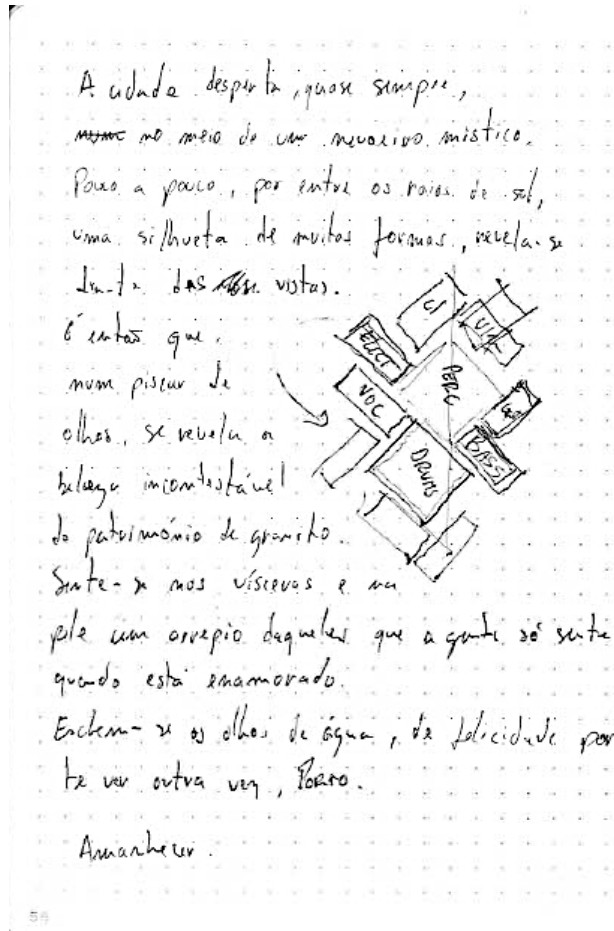 A cidade desperta, quase sempre,
no meio de um nevoeiro místico.
Pouco a pouco, por entre os raios de sol,
uma silhueta de muitas formas, revela-se
diante das vistas.
É então que,
num piscar de
olhos, se revela a
beleza incontestável
do património de granito.
Sente-se nas vísceras e na
pele um arrepio daqueles que a gente só sente
quando está enamorado.
Enchem-se os olhos de água, de felicidade por
te ver outra vez, PORTO.
Amanhecer.
ELECT
VOC
PERC
DRUMS
BASS
56